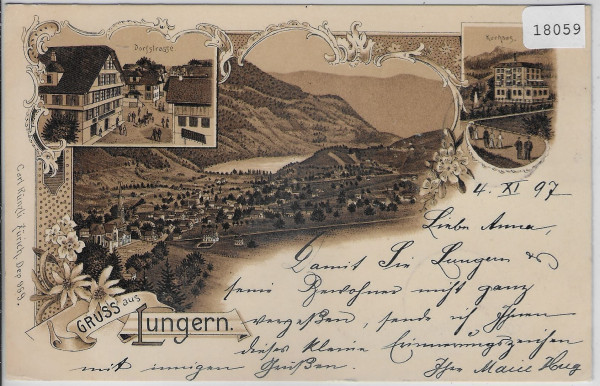 18059
Dorfstrasse
Kurhaus
Carl Künzli Zürich, Dep. 659.
GRUSS aus
Lungern.
4. XI 97
Liebe Anna,
Damit Sie Lungern &
seine Bewohner nicht ganz
vergessen, sende ich Ihnen
dieses kleine Erinnerungszeichen
mit innigen Grüssen.
Ihre Marie Hug